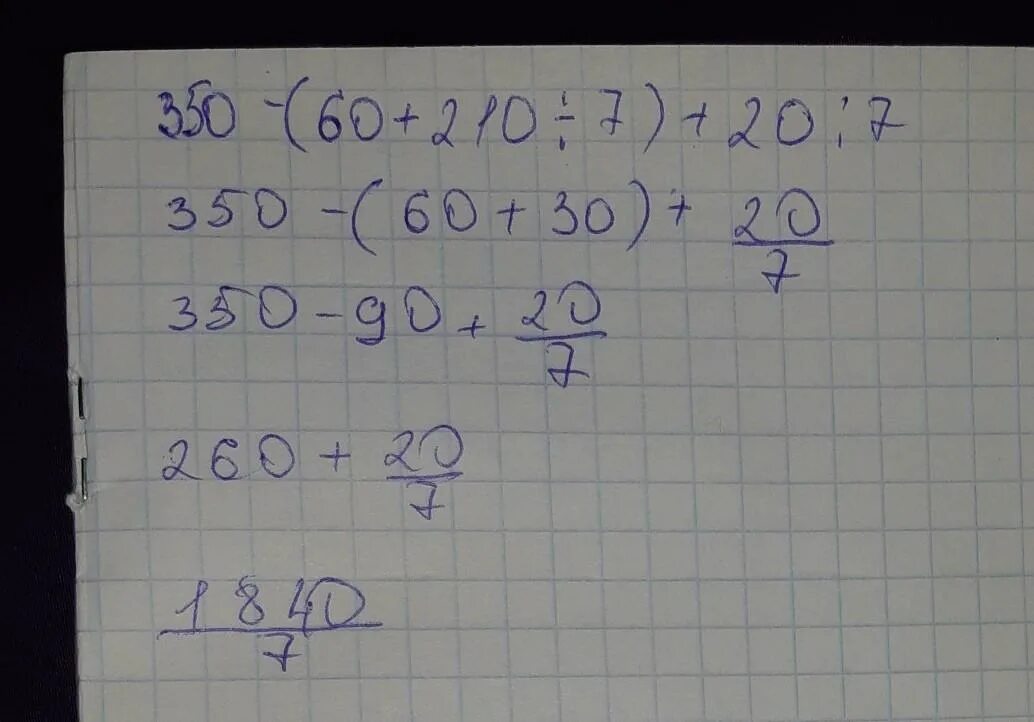 350 - (60 + 210 ÷ 7) + 20 : 7
350 - (60 + 30) + 20/7
350 - 90 + 20/7
260 + 20/7
1840/7